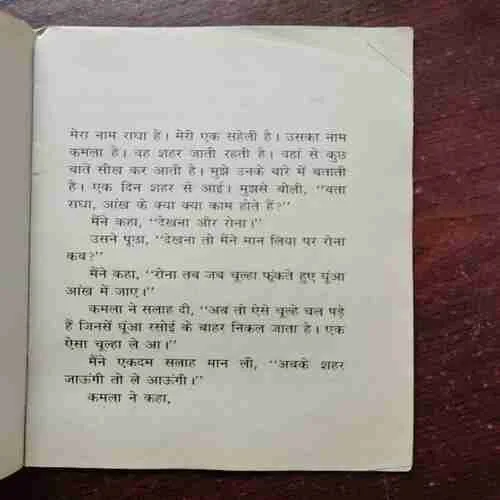 मेरा नाम राधा है। मेरी एक सहेली है। उसका नाम
कमला है। वह शहर जाती रहती है। वहां से कुछ
बातें सीख कर आती है। मुझे उनके बारे में बताती
है। एक दिन शहर से आई। मुझसे बोली, “बता
राधा, आंख के क्या क्या काम होते हैं?”
मैंने कहा, “देखना और रोना।”
उसने पूछा, “देखना तो मैंने मान लिया पर रोना
कब?”
मैंने कहा, “रोना तब जब चूल्हा फूंकते हुए धूंआ
आंख में जाए।”
कमला ने सलाह दी, “अब तो ऐसे चूल्हे चल पड़े
हैं जिनसें धूंआ रसोई के बाहर निकल जाता है। एक
ऐसा चूल्हा ले आ।”
मैंने एकदम सलाह मान ली, “अबके शहर
जाऊंगी तो ले आऊंगी।”
कमला ने कहा,